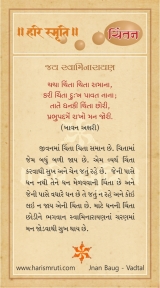 ॥ हरि स्मृति ॥
ચિંતન
જય સ્વામિનારાયણ
યથા ચિંતા ચિતા સમાના,
કરી ચિંતા દુઃખ પાવત નાના;
તાતે ધનકી ચિંતા છોરી,
પ્રભુપદમેં રાખો મન જોરી.
(બાવન અક્ષરી)
જીવનમાં ચિંતા ચિતા સમાન છે. ચિતામાં
જેમ બધું બળી જાય છે. એમ વ્યર્થ ચિંતા
કરવાથી સુખ અને ચેન જતું રહે છે. જેની પાસે
ધન નથી તેને ધન મેળવવાની ચિંતા છે. અને
જેની પાસે વધારે ધન છે તે જતું ન રહે અને કોઈ
લઈ ન જાય એની ચિંતા છે. માટે ધનની ચિંતા
છોડીને ભગવાન સ્વામિનારાયણનાં ચરણમાં
મન જોડવાથી સુખ થાય છે.
www.harismruti.com
Jnan Baug - Vadtal